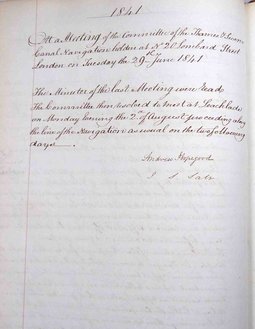 1841
At a Meeting of the Committee of the Thames & Severn
Canal Navigation holden at No. 20 Lombard Street
London on Tuesday the 29th June 1841
The Minutes of the last Meeting were read
The Committee then resolved to meet at Lechlade
on Monday Evening the 2d. of August proceeding along
the line of the Navigation as usual on the two following
days.
Andrew Hopegood